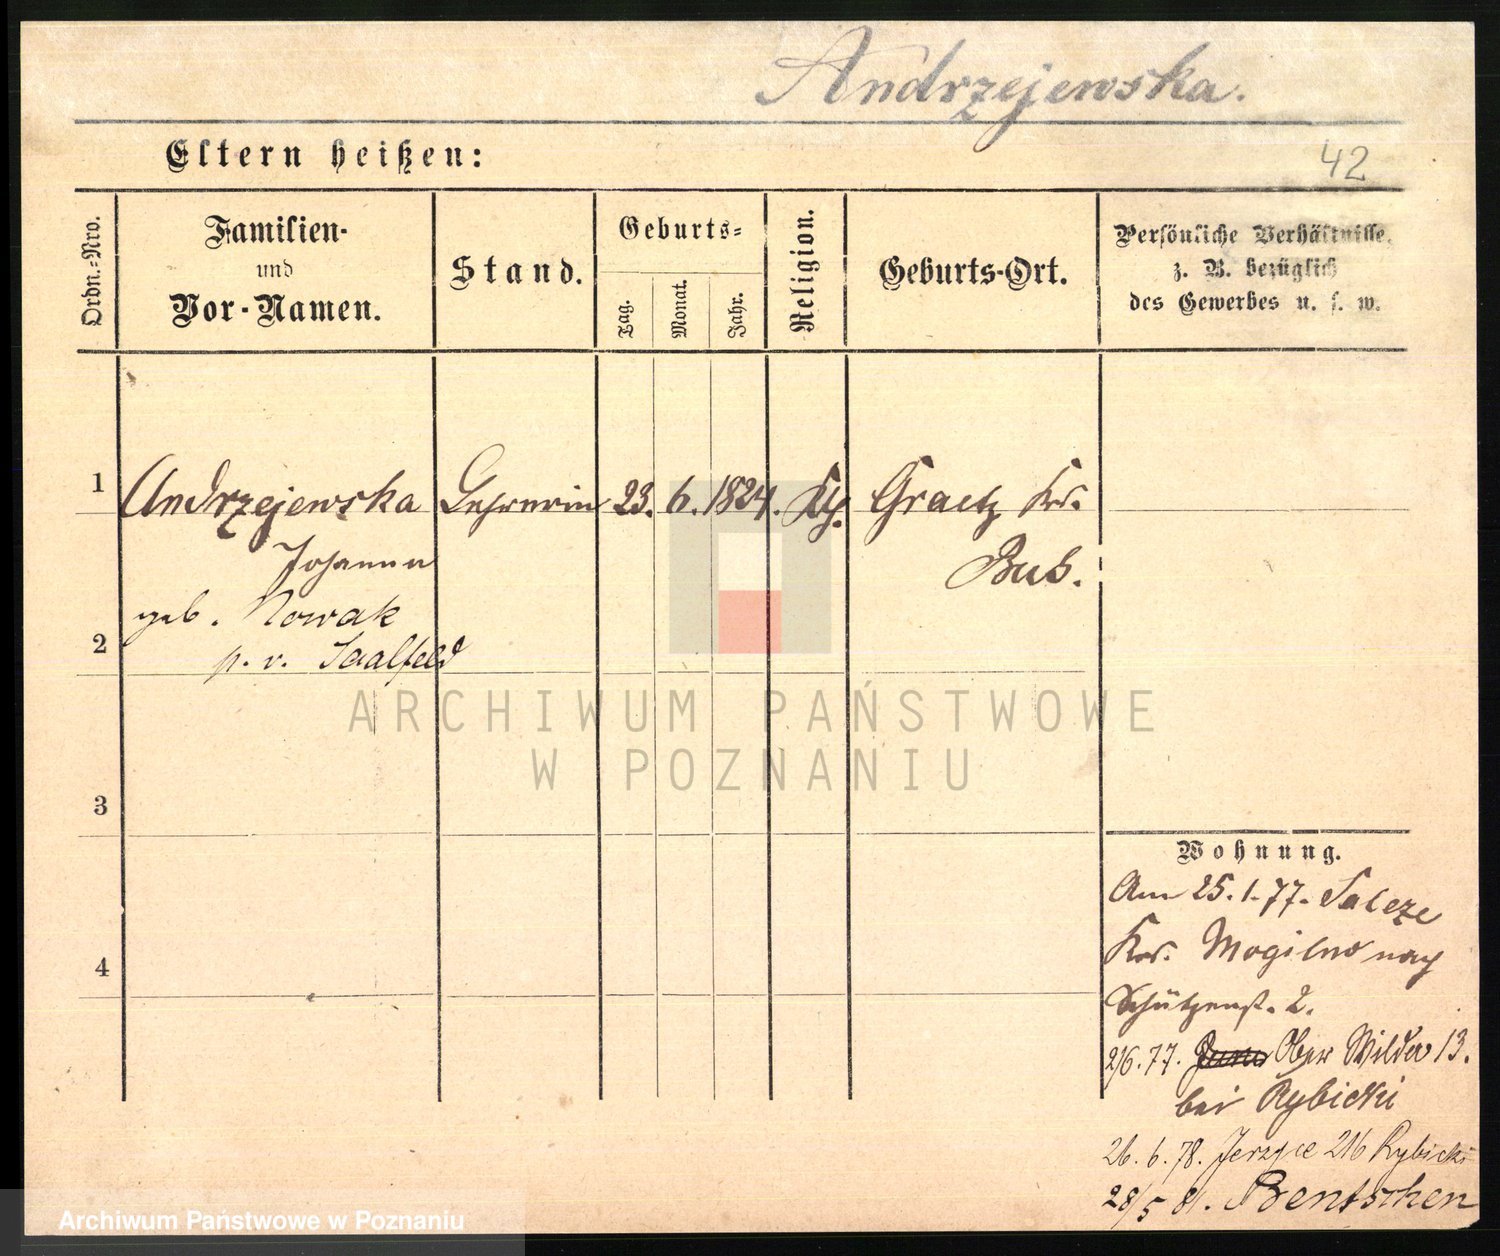 Andrzejewska.
Eltern heißen:
42
Ordn.-Nro.
Familien-
und
Vor-Namen.
Stand.
Geburts-
Tag.
Monat.
Jahr.
Religion.
Geburts-Ort.
Persönliche Verhältnisse,
z. B. bezüglich
des Gewerbes u. s. w.
1 Andrzejewska Lehrerin 23. 6. 1824. Kth. Graetz Krs.
Johanna Buk.
geb. Nowak
2 p. v. Saalfeld
ARCHIWUM PAŃSTWOWE
W POZNANIU
3
4
Wohnung.
Am 25.1.77. Saleze
Krs. Mogilno nach
Schützenst. 2.
2/6.77. Ober Wilda 13.
bei Rybicki
26.6.78. Jerzyce 216 Rybicki
28/5 81. Bentschen
Archiwum Państwowe w Poznaniu